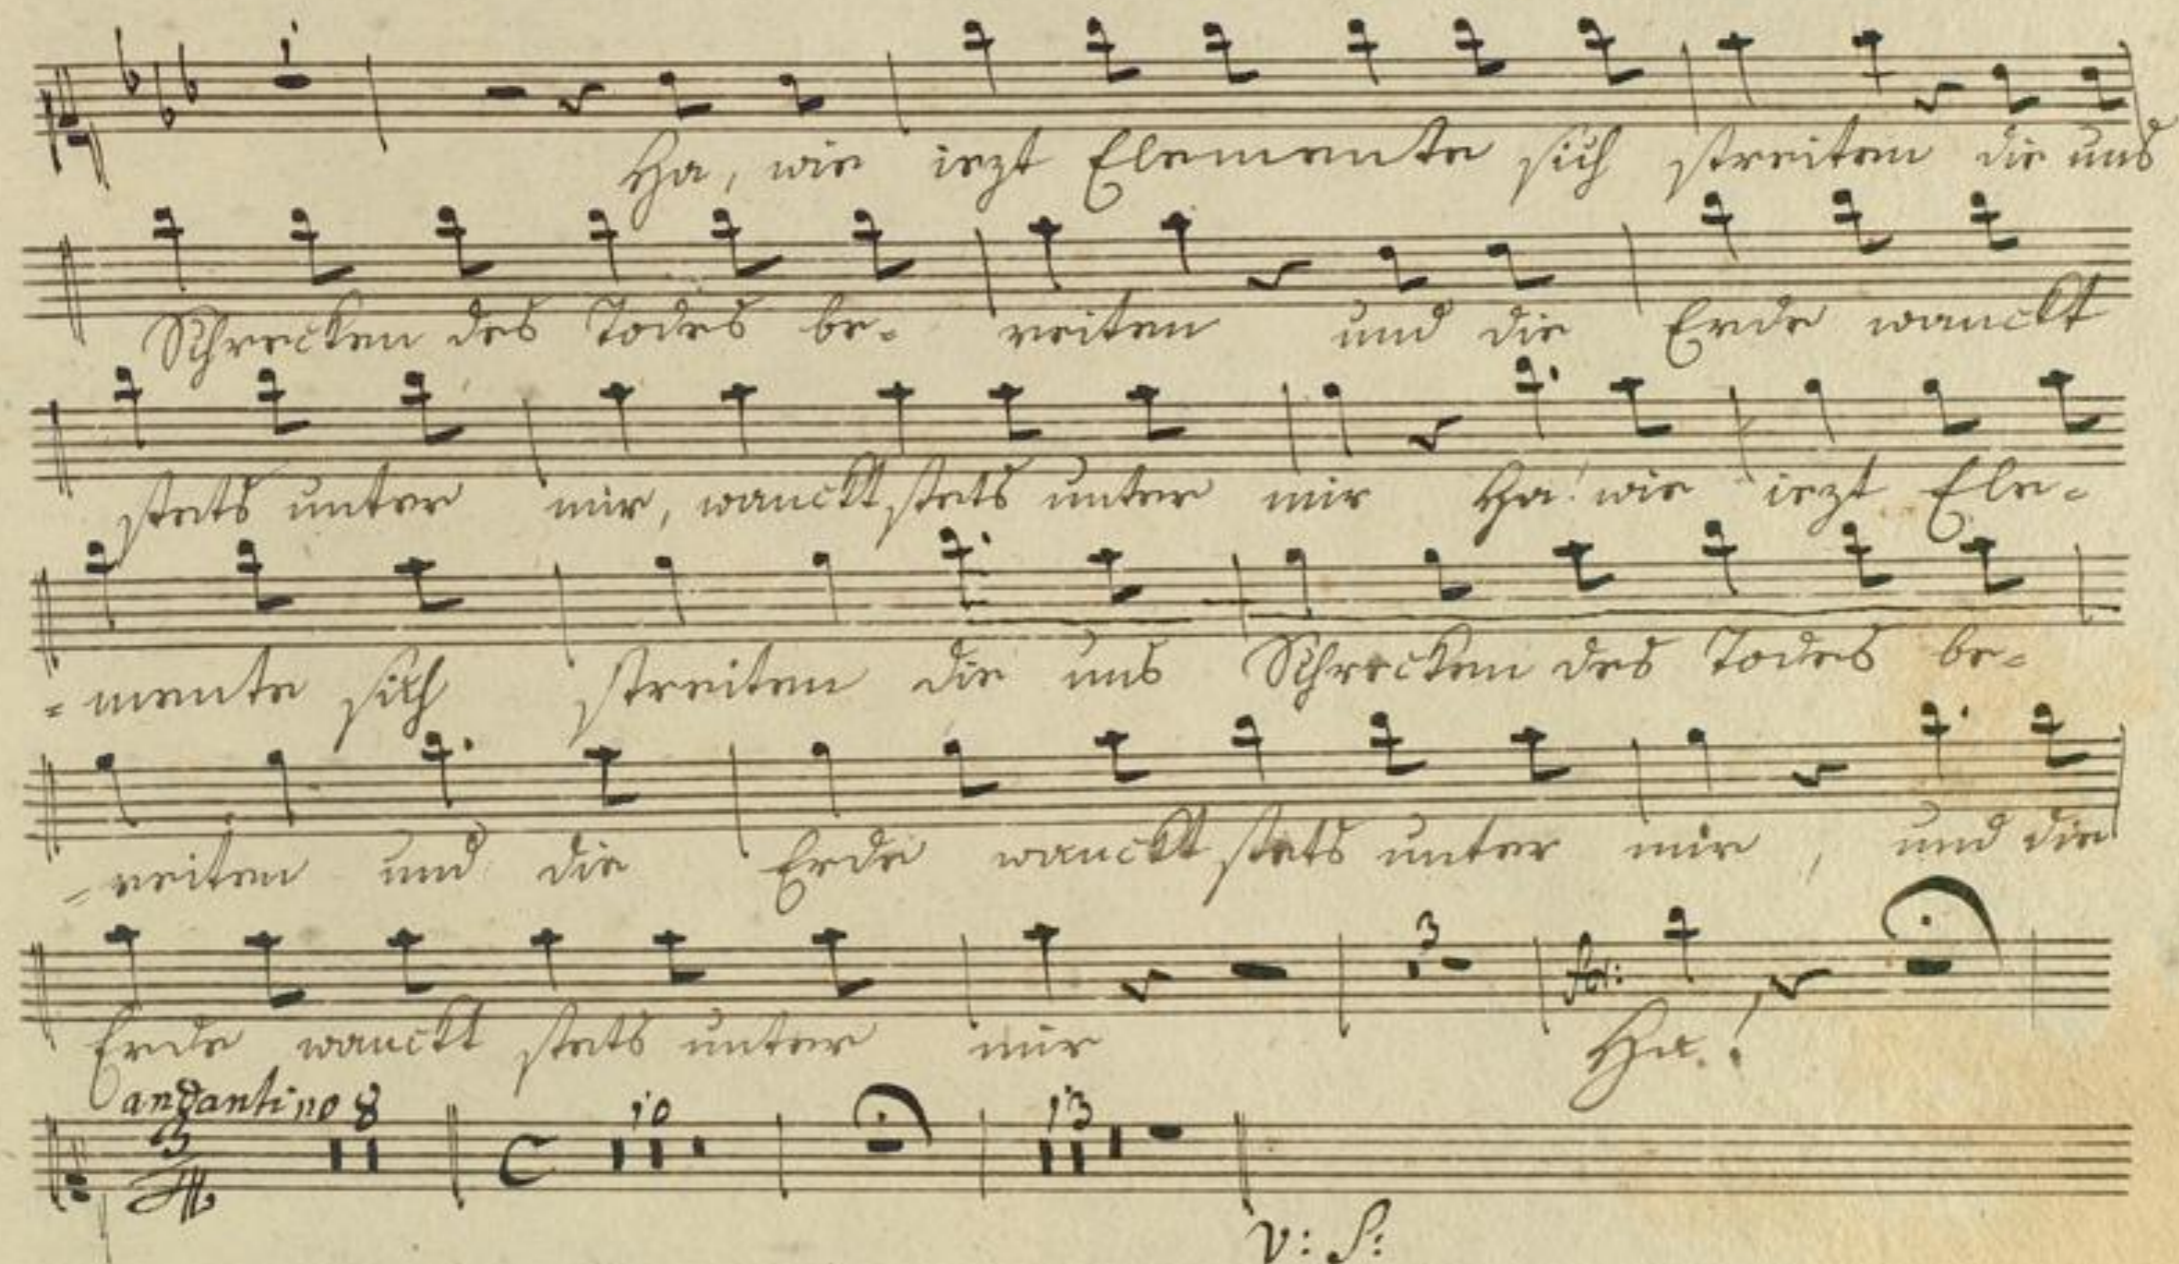 1
Ha, wie iezt Elemente sich streiten die uns
Schrecken des Todes be-
reiten und die Erde wanckt
stets unter mir, wanckt stets unter mir Ha! wie iezt Ele-
-mente sich streiten die uns Schrecken des Todes be-
-reiten und die Erde wanckt stets unter mir, und die
3 for:
Erde wanckt stets unter mir Ha!
andantino 8 10 13
3
4
V: S: